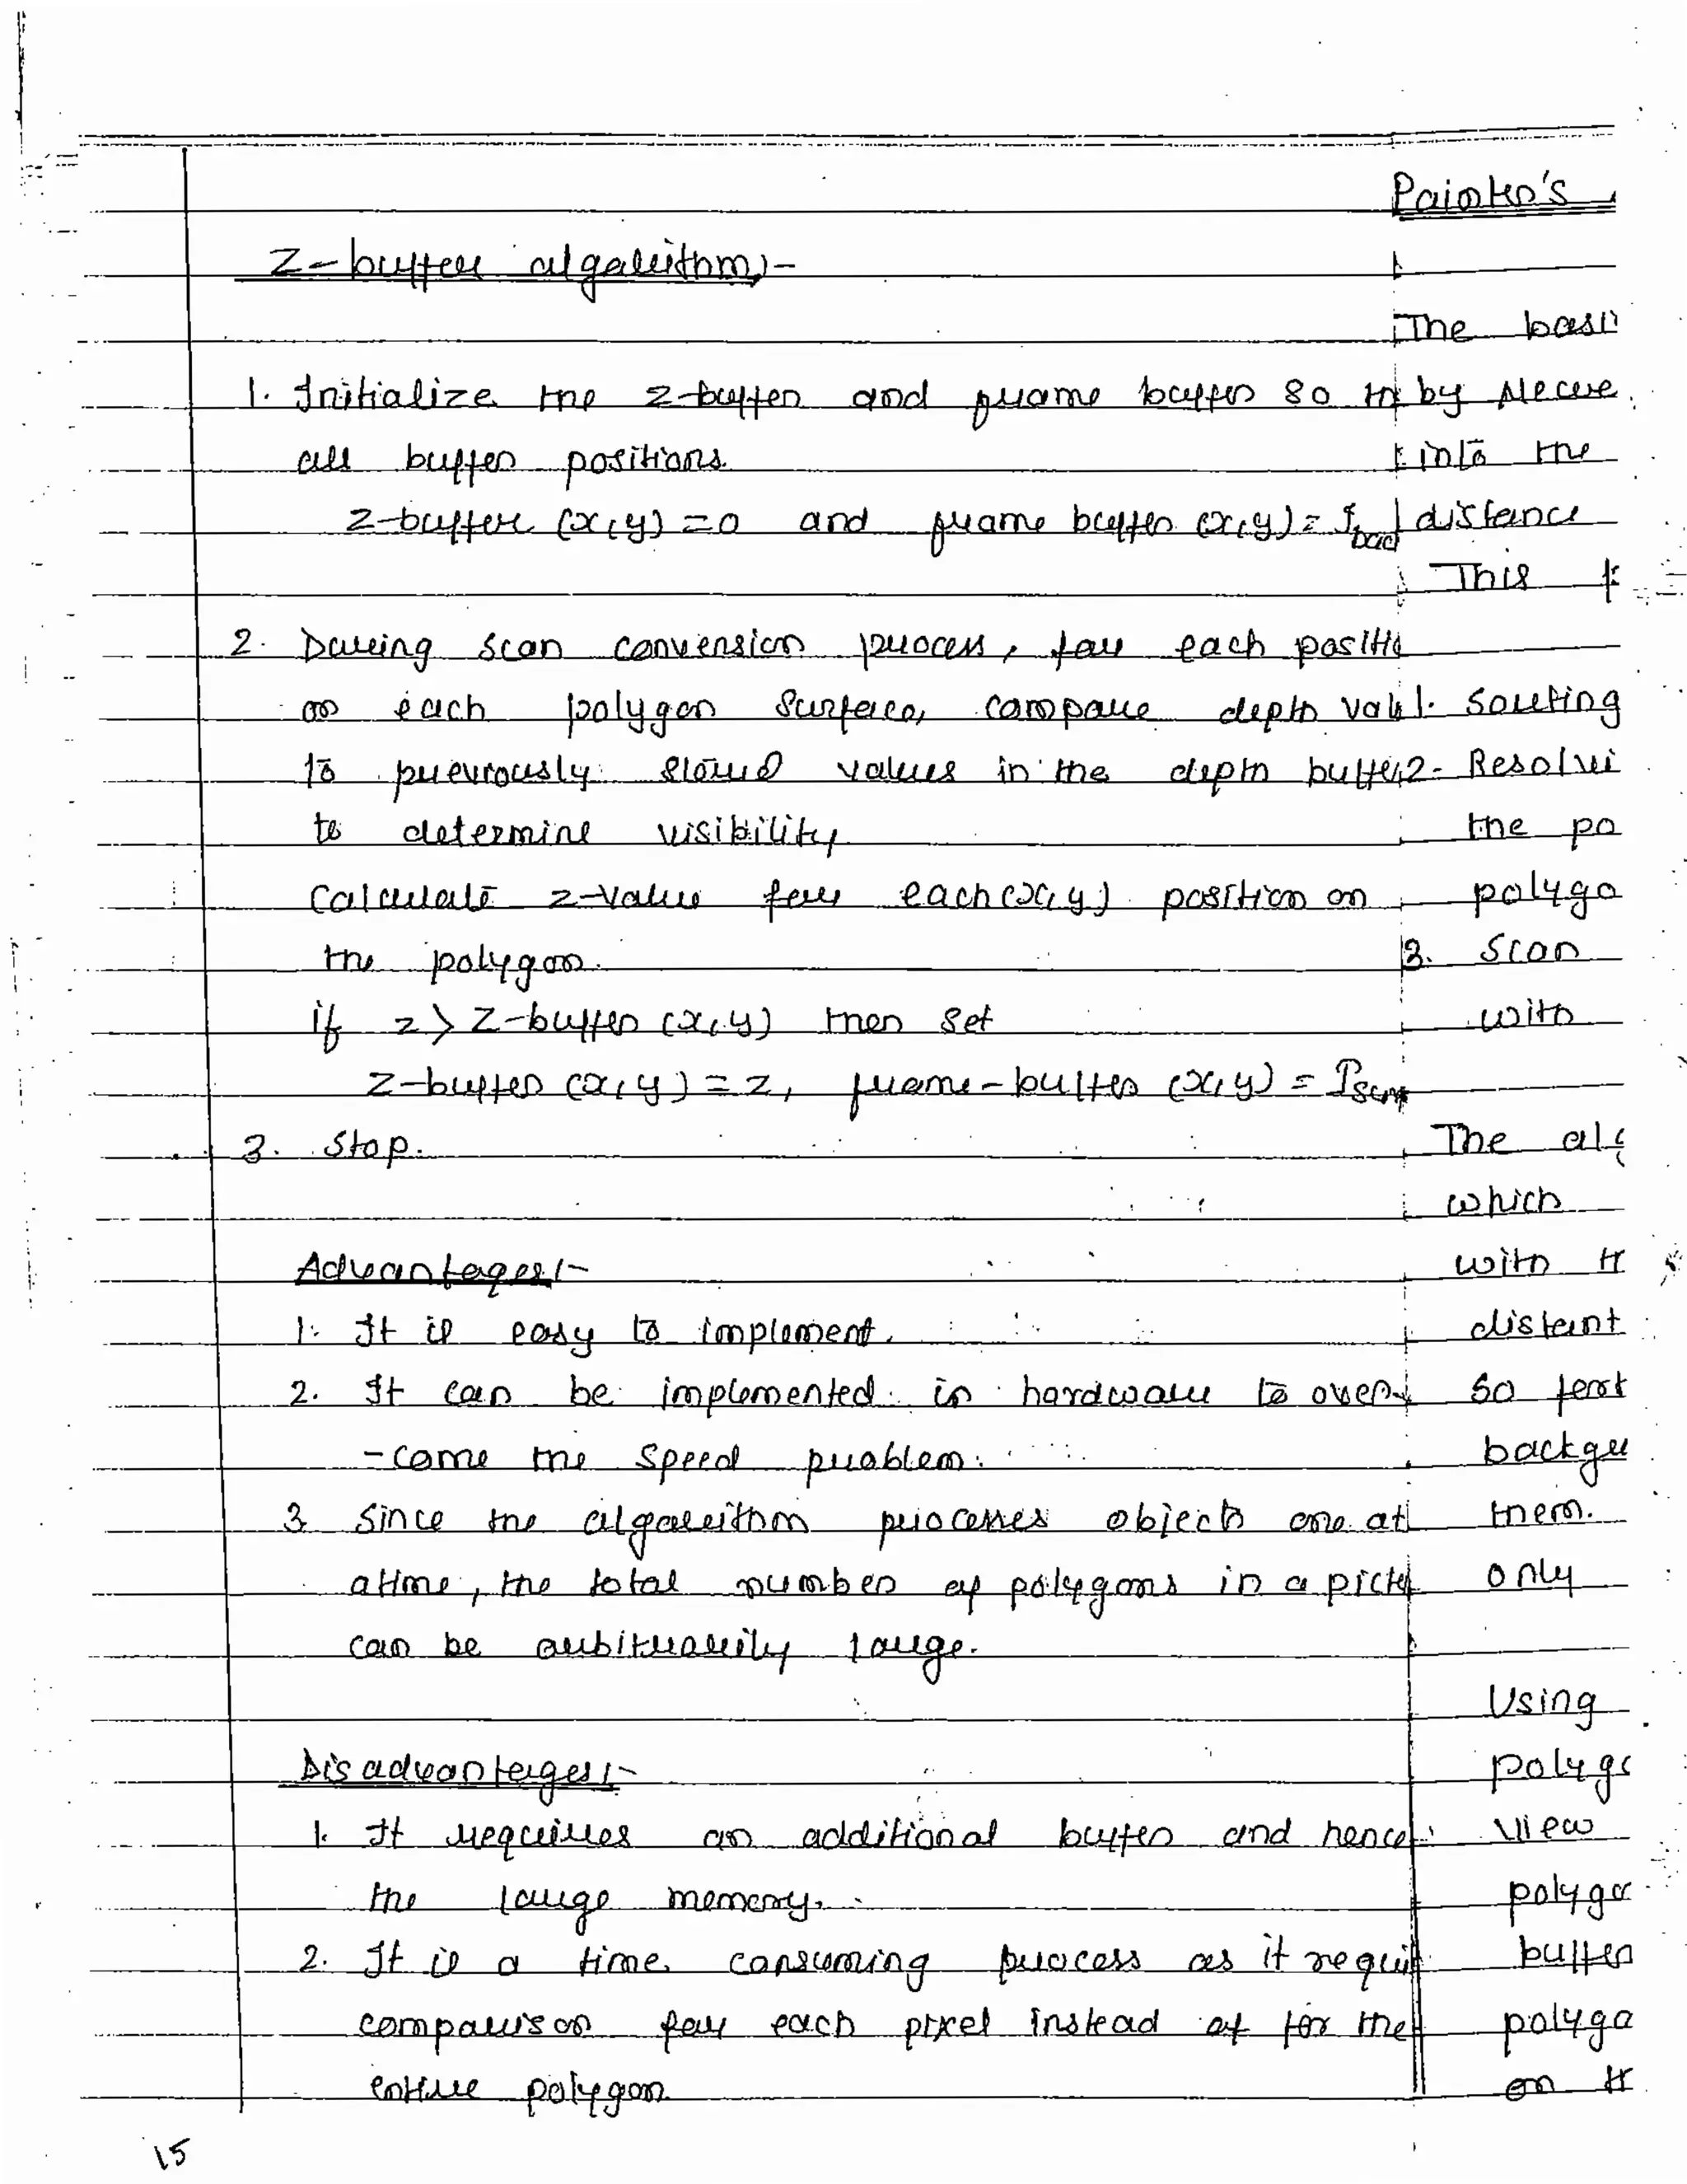 Z-buffer algorithm:-
1. Initialize the z-buffer and frame buffer so th
all buffer positions.
z-buffer (x,y) = 0 and frame buffer (x,y) = I bac
2. During scan conversion process, for each positio
on each polygon surface, compare depth val
to previously stored values in the depth buffer
to determine visibility
Calculate z-value for each (x,y) position on
the polygon.
if z > Z-buffer (x,y) then set
Z-buffer (x,y) = z, frame-buffer (x,y) = I surf
3. Stop.
Advantages:-
1. It is easy to implement.
2. It can be implemented in hardware to over
-come the speed problem.
3 Since the algorithm processes objects one at
a time, the total number of polygons in a pict
can be arbitrarily large.
Disadvantages:-
1. It requires an additional buffer and hence
the large memory.
2. It is a time consuming process as it requi
comparison for each pixel instead of for the
entire polygon
15
Painter's
The basi
by
into the
distance
This
1. Sorting
2. Resolvi
the po
polygo
3. Scan
with
The alg
which
with t
distant
so
backgr
them.
only
Using
polygo
view
polygo
buffer
polygo
on t